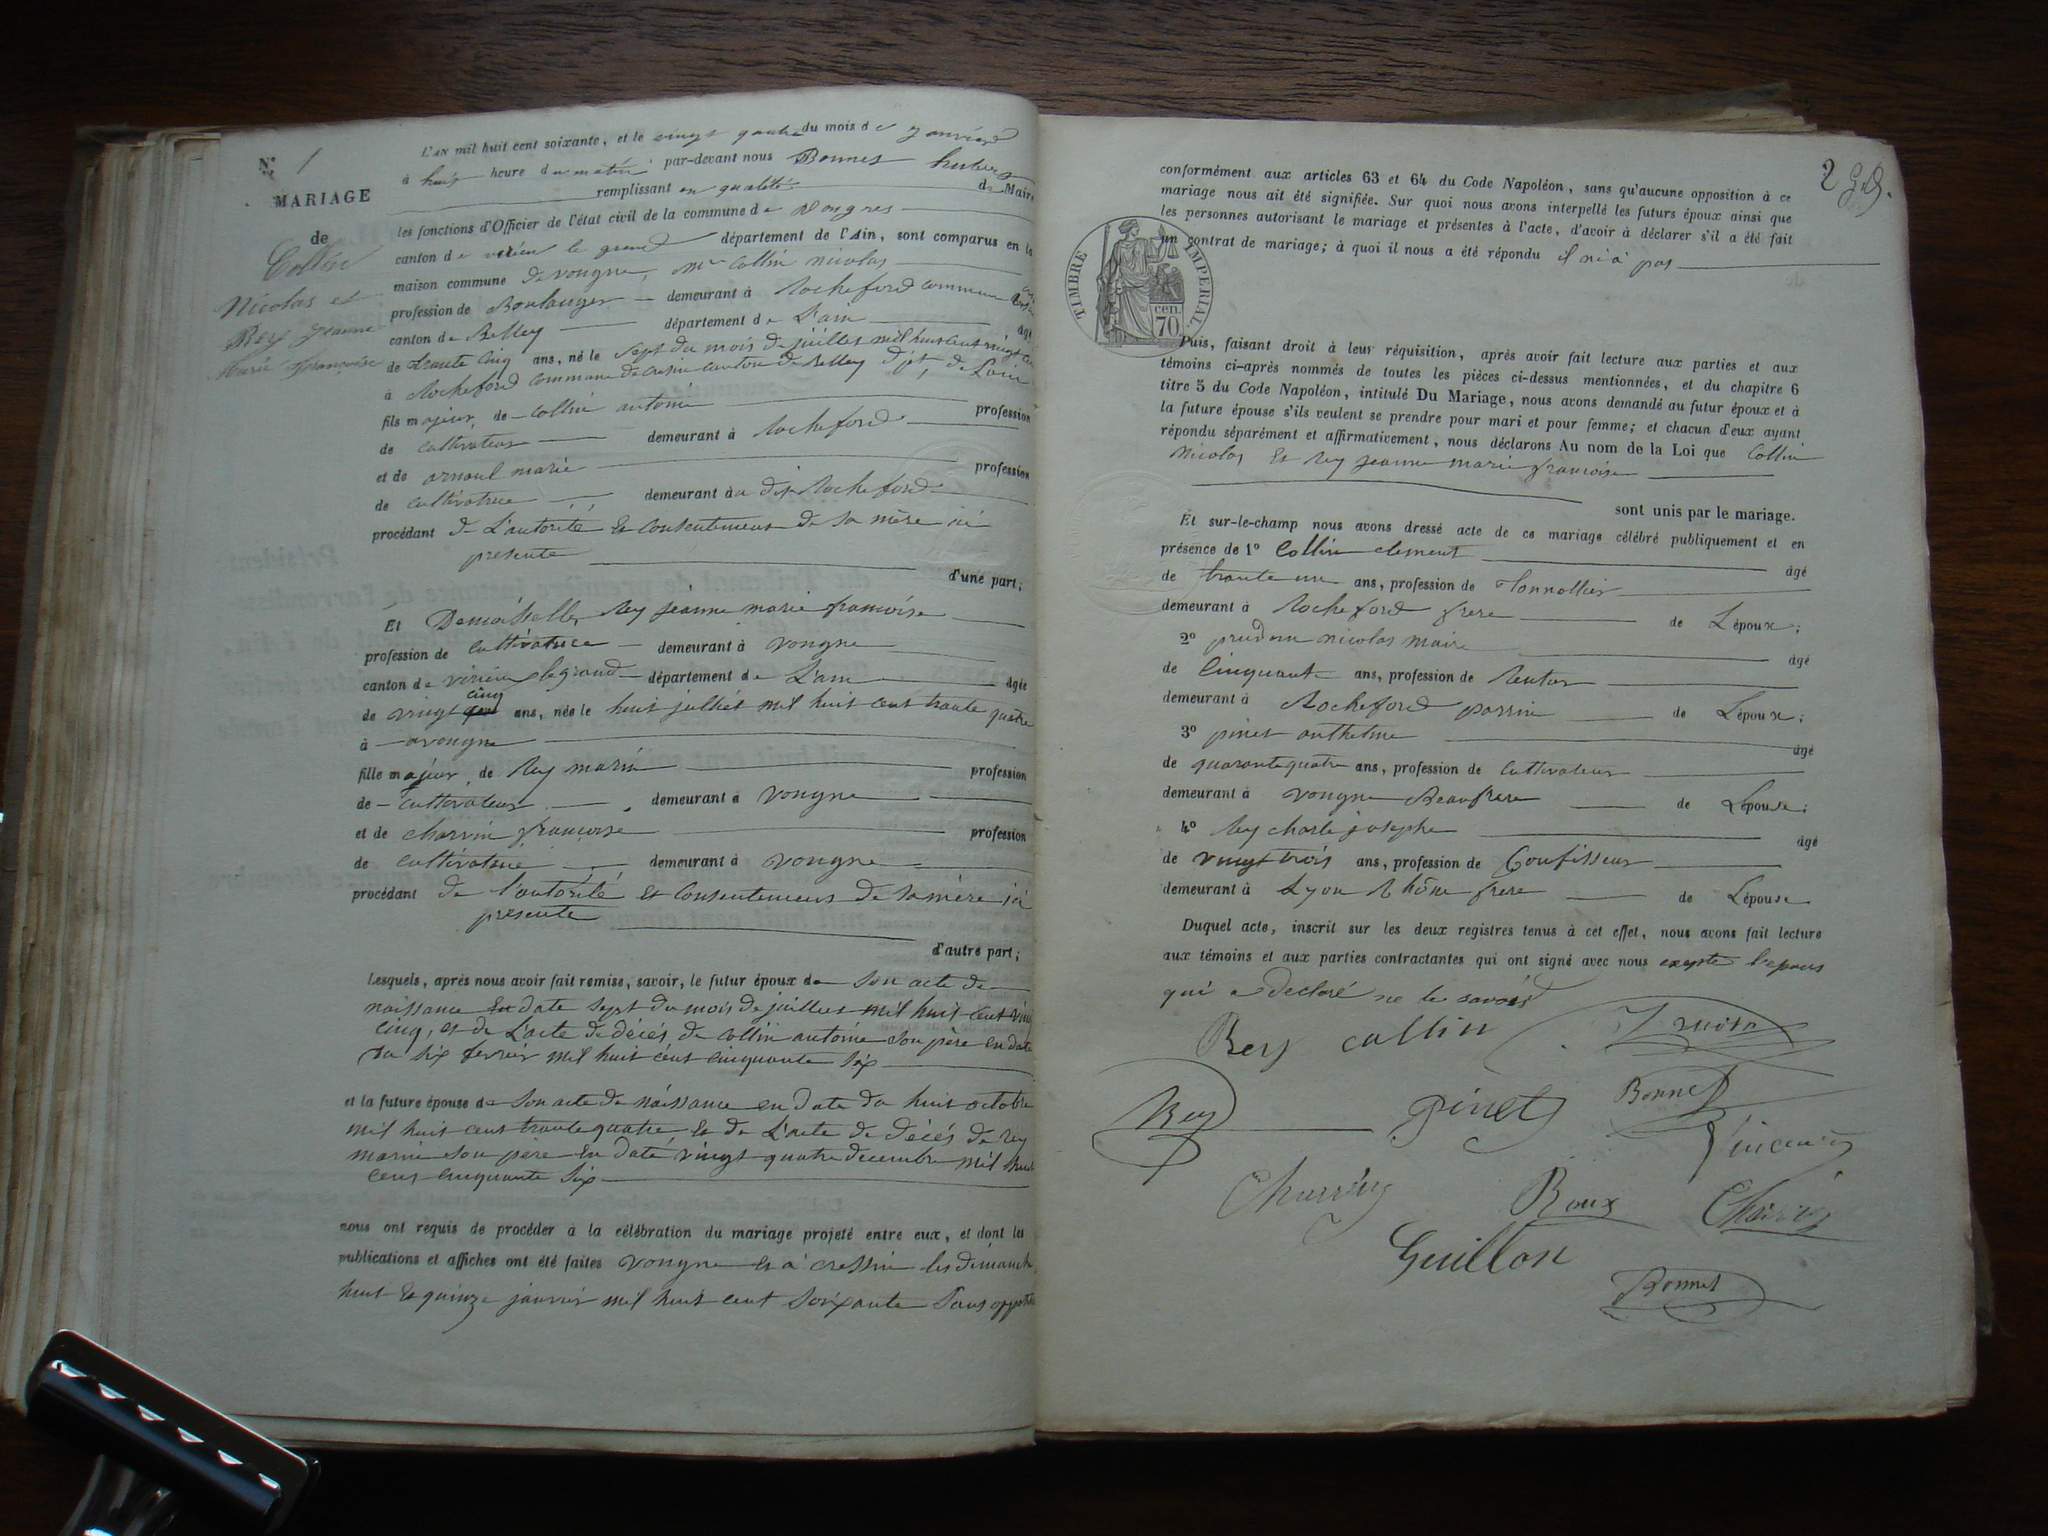 N.° 1
MARIAGE
de
Collin
Nicolas et
Rey Jeanne
Marie Françoise
L'AN mil huit cent soixante, et le vingt quatre du mois de janvier
à huit heure du matin par-devant nous Bonnet
remplissant en qualité de Maire
les fonctions d'Officier de l'état civil de la commune de Vongnes
canton de virieu le grand département de l'Ain, sont comparus en la
maison commune de vongne, Mr Collin nicolas
profession de Boulanger demeurant à Rocheford commune
canton de Belley département de L'ain âgé
de trante cinq ans, né le sept du mois de juillet mil huit cent vingt cinq
à Rocheford commune de cresin canton de Belley dpt, de L'ain
fils majeur, de Collin antoine profession
de cultivateur demeurant à Rocheford
et de arnoul marie profession
de cultivatrice demeurant au dit Rocheford
procédant de L'autorité et consentement de sa mère ici
presente
d'une part;
Et Demoiselle, Rey jeanne marie francoise
profession de cultivatrice demeurant à vongne
canton de virieu le grand département de L'ain âgée
de vingt cinq ans, née le huit julliet mil huit cent trante quatre
à avongne
fille majeur, de Rey marin profession
de cultivateur demeurant à vongne
et de charvin francoise profession
de cultivatrice demeurant à vongne
procédant de l'autorité et consentement de sa mère ici
presente
d'autre part;
Lesquels, après nous avoir fait remise, savoir, le futur époux de son acte de
naissance en date sept du mois de juillet mil huit cent vingt
cinq, et de L'acte de décès de collin antoine son père en date
du six fevrier mil huit cent cinquante six
et la future épouse de son acte de naissance en date du huit octobre
mil huit cent trante quatre et de L'acte de décès de rey
marin son père en date vingt quatre decembre mil huit
cent cinquante six
nous ont requis de procéder à la célébration du mariage projeté entre eux, et dont les
publications et affiches ont été faites vongne et à cressin les dimanche
huit et quinze janvier mil huit cent soixante sans opposition
2
conformément aux articles 63 et 64 du Code Napoléon, sans qu'aucune opposition à ce
mariage nous ait été signifiée. Sur quoi nous avons interpellé les futurs époux ainsi que
les personnes autorisant le mariage et présentes à l'acte, d'avoir à déclarer s'il a été fait
un contrat de mariage; à quoi il nous a été répondu il ni a pas
TIMBRE IMPERIAL.
70 cen.
Puis, faisant droit à leur réquisition, après avoir fait lecture aux parties et aux
témoins ci-après nommés de toutes les pièces ci-dessus mentionnées, et du chapitre 6
titre 5 du Code Napoléon, intitulé Du Mariage, nous avons demandé au futur époux et à
la future épouse s'ils veulent se prendre pour mari et pour femme; et chacun d'eux ayant
répondu séparément et affirmativement, nous déclarons Au nom de la Loi que Collin
nicolas Et Rey jeanne marie francoise
sont unis par le mariage.
Et sur-le-champ nous avons dressé acte de ce mariage célébré publiquement et en
présence de 1° Collin clement âgé
de trante un ans, profession de Tonnollier
demeurant à Rocheford frere de L'époux;
2° nicolas maire âgé
de Cinquant ans, profession de Rentier
demeurant à Rocheford parrin de L'époux;
3° pinet anthelme âgé
de quarante quatre ans, profession de cultivateur
demeurant à vongne Beaufrere de L'épouse;
4° Rey charle josephe âgé
de vingt trois ans, profession de Confisseur
demeurant à Lyon Rhône frere de L'épouse
Duquel acte, inscrit sur les deux registres tenus à cet effet, nous avons fait lecture
aux témoins et aux parties contractantes qui ont signé avec nous exepte L'epoux
qui a declaré ne le savoir
Rey collin
Rey Pinet Bonnet
Vincent
Charvin Roux Charvin
Guillon
Bonnet